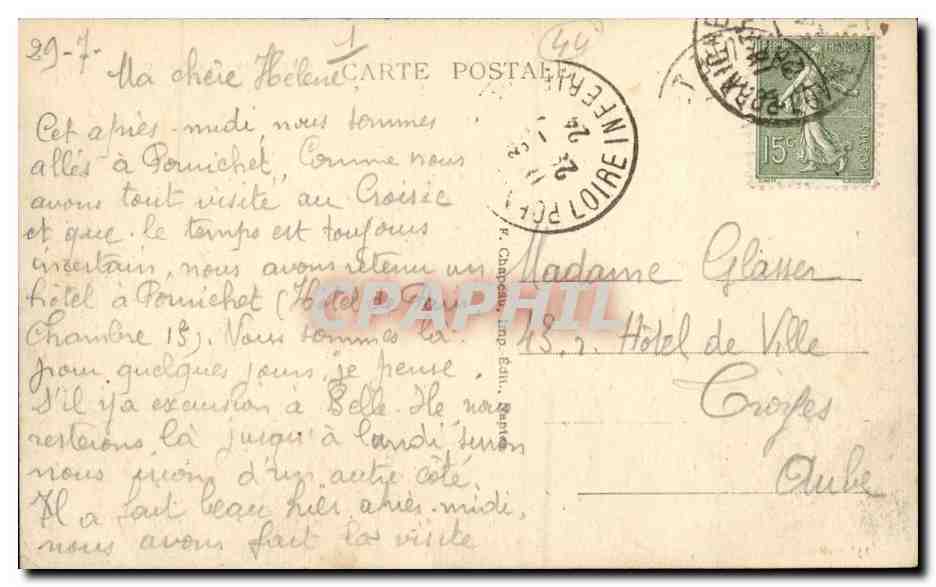 29-7-
1
(44)
Ma chère Hélène,
CARTE POSTALE
Cet après-midi, nous sommes
allés à Pornichet. Comme nous
avons tout visité au Croisic
et que le temps est toujours
incertain, nous avons retenu un
hôtel à Pornichet (Hôtel de
Chambre 15). Nous sommes là
pour quelques jours, je pense.
S'il y a excursion à Belle-Ile, nous
resterons là jusqu'à lundi, sinon
nous irons d'un autre côté.
Il a fait beau hier après-midi,
nous avons fait la visite
LOIRE INFERIE
24
15c
F. Chapeau, Imp. Édit., Nantes
Madame Glässer
13, r. Hôtel de Ville
Troyes
Aube
CPAPHIL